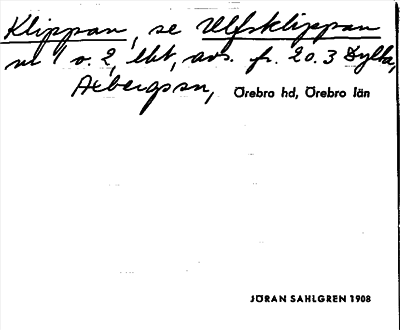 Klippan, se Ulfsklippan
nr 1 o. 2, lht, avs. fr. 2 o. 3 Dylta,
Axbergs sn, Örebro hd, Örebro län
JÖRAN SAHLGREN 1908